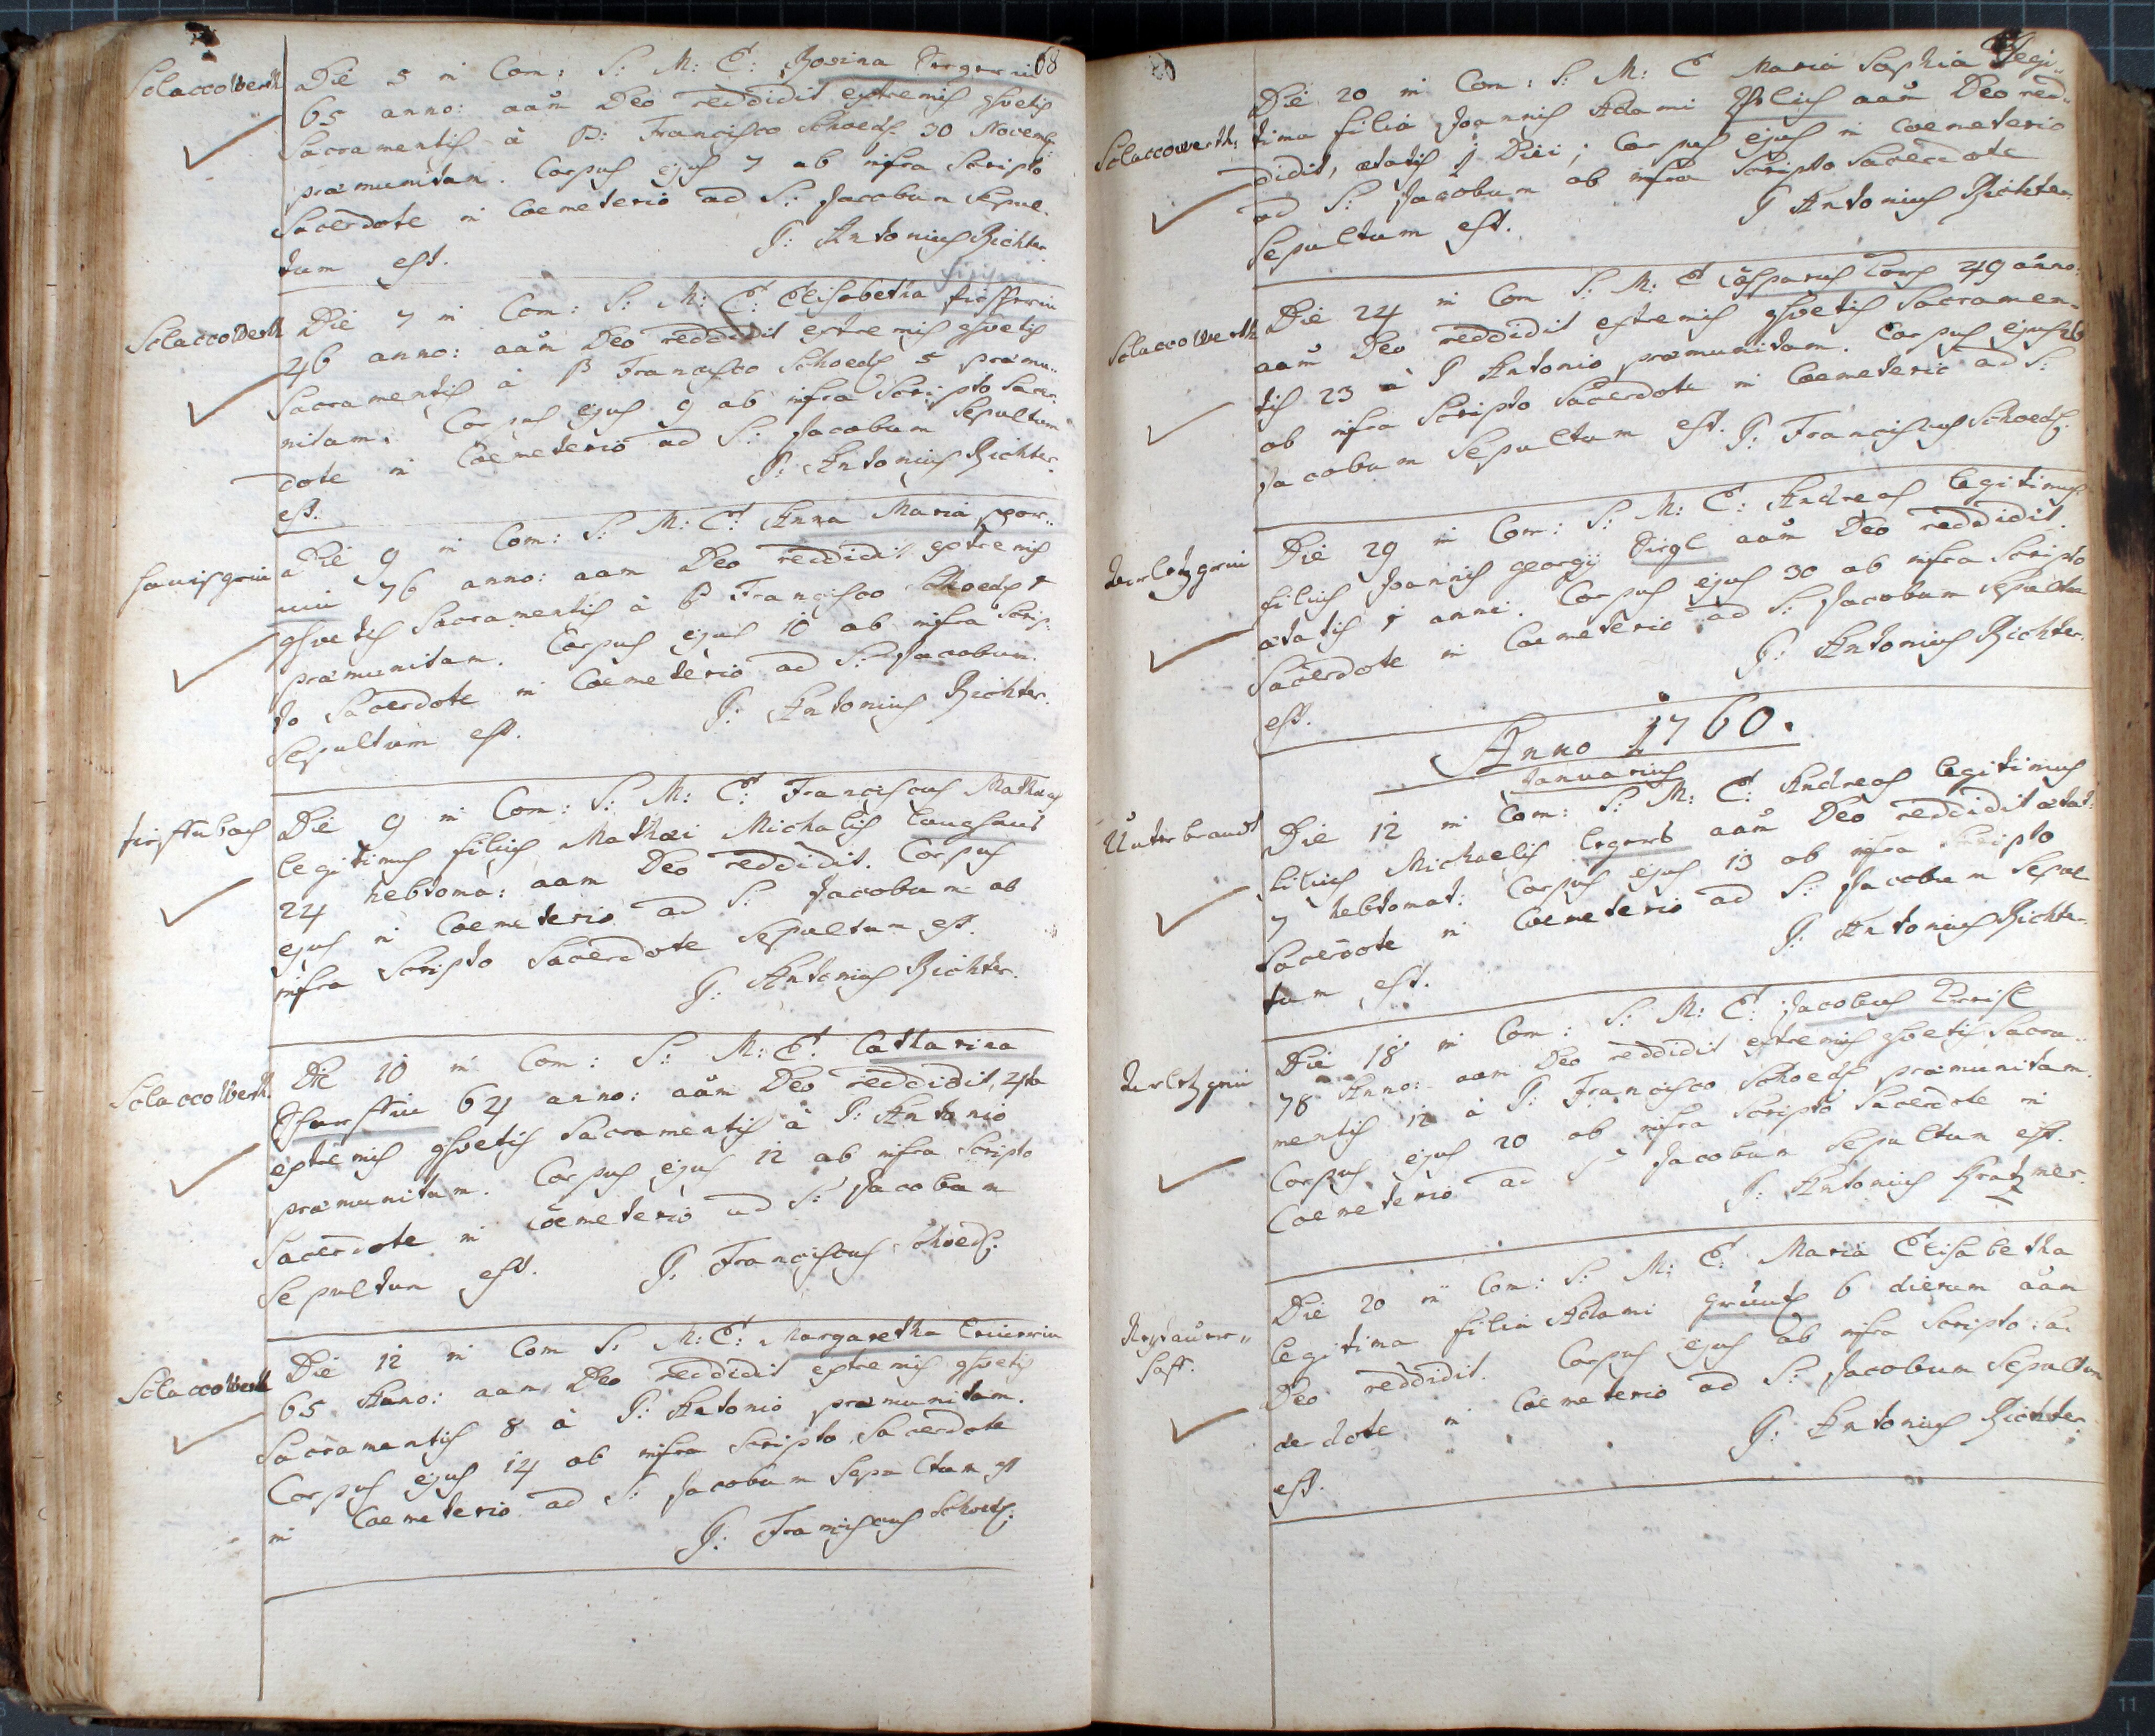 68
Slaccowerth
Die 5 in Com: S: M: E: Rosina
65 anno: aam Deo reddidit extremis gsvetis
Sacramentis à P: Francisco Schoedl 30 Novemb:
præmunitam. Corpus ejus 7 ab infra Scripto
Sacerdote in Coemeterio ad S: Jacobum Sepul-
tum est. P: Antonius Richter.
Slaccowerth
Die 7 in Com: S: M: E: Elisabetha
46 anno: aam Deo reddidit extremis gsvetis
Sacramentis à P Francisco Schoedl 5 præmu-
nitam. Corpus ejus 9 ab infra Scripto Sacer-
dote in Coemeterio ad S: Jacobum Sepultum
est. P: Antonius Richter.
Die 9 in Com: S: M: E: Anna Maria
76 anno: aam Deo reddidit extremis
gsvetis Sacramentis à P Francisco Schoedl
præmunitam. Corpus ejus 10 ab infra Scrip-
to Sacerdote in Coemeterio ad S: Jacobum
Sepultum est. P: Antonius Richter.
Die 9 in Com: S: M: E: Franciscus Mathæus
legitimus filius Mathæi Michalis Langhans
24 hebdoma: aam Deo reddidit. Corpus
ejus in Coemeterio ad S: Jacobum ab
infra Scripto Sacerdote Sepultum est.
P: Antonius Richter.
Slaccowerth.
Die 10 in Com: S: M: E: Catharina
64 anno: aam Deo reddidit, 4ta
extremis gsvetis Sacramentis à P: Antonio
præmunitam. Corpus ejus 12 ab infra Scripto
Sacerdote in Coemeterio ad S: Jacobum
Sepultum est. P: Franciscus Schoedl.
Slaccowerth
Die 12 in Com S: M: E: Margaretha
65 Anno: aam Deo reddidit extremis gsvetis
Sacramentis 8 à P: Antonio præmunitam.
Corpus ejus 14 ab infra Scripto Sacerdote
in Coemeterio ad S: Jacobum Sepultum est
P: Franciscus Schoedl.
Slaccowerth:
Die 20 in Com: S: M: E Maria Sophia Legi-
tima filia Joannis Adami aam Deo red-
didit, ætatis 1 Diei; Corpus ejus in Coemeterio
ad S: Jacobum ab infra Scripto Sacerdote
Sepultum est. P Antonius Richter.
Slaccowerth
Die 24 in Com S: M: E Casparus 49 anno:
aam Deo reddidit extremis gsvetis Sacramen-
tis 23 à P Antonio præmunitam. Corpus ejus 26
ab infra Scripto Sacerdote in Coemeterio ad S:
Jacobum Sepultum est. P: Franciscus Schoedl.
Die 29 in Com: S: M: E: Andreas legitimus
filius Joannis georgij aam Deo reddidit
ætatis 1 anni. Corpus ejus 30 ab infra Scripto
Sacerdote in Coemeterio ad S: Jacobum Sepultum
est. P: Antonius Richter.
Anno 1760.
Januarius
Unterbrandt
Die 12 in Com: S: M: E: Andreas legitimus
filius Michaelis aam Deo reddidit ætat:
7 hebdomat: Corpus ejus 13 ab infra Scripto
Sacerdote in Coemeterio ad S: Jacobum Sepul
tum est. P: Antonius Richter.
Die 18 in Com: S: M: E: Jacobus
78 Anno: aam Deo reddidit extremis gsvetis Sacra-
mentis 12 à P: Francisco Schoedl præmunitam.
Corpus ejus 20 ab infra Scripto Sacerdote in
Coemeterio ad S: Jacobum Sepultum est.
P: Antonius Kratzmer.
Die 20 in Com: S: M: E: Maria Elisabetha
legitima filia Adami 6 dierum aam
Deo reddidit. Corpus ejus ab infra Scripto Sa-
cerdote in Coemeterio ad S: Jacobum Sepultum
est. P: Antonius Richter.
11